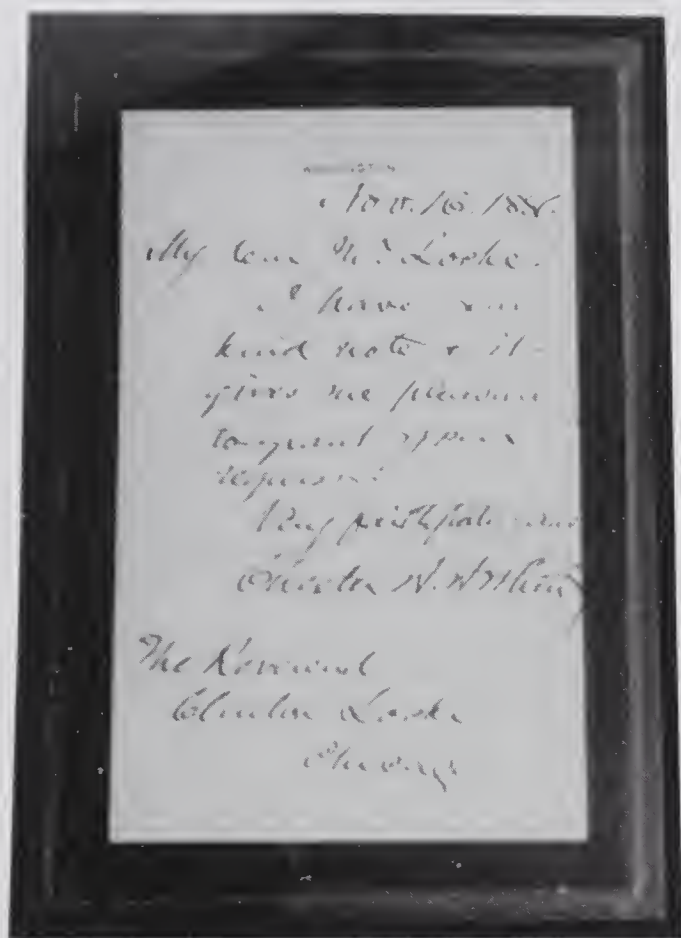 Nov. 16.
My dear Mr Locke.
I have your
kind note & it
gives me pleasure
to grant your
request.
Very faithfully yours
Chester A. Arthur
The Reverend
Clinton Locke
Chicago